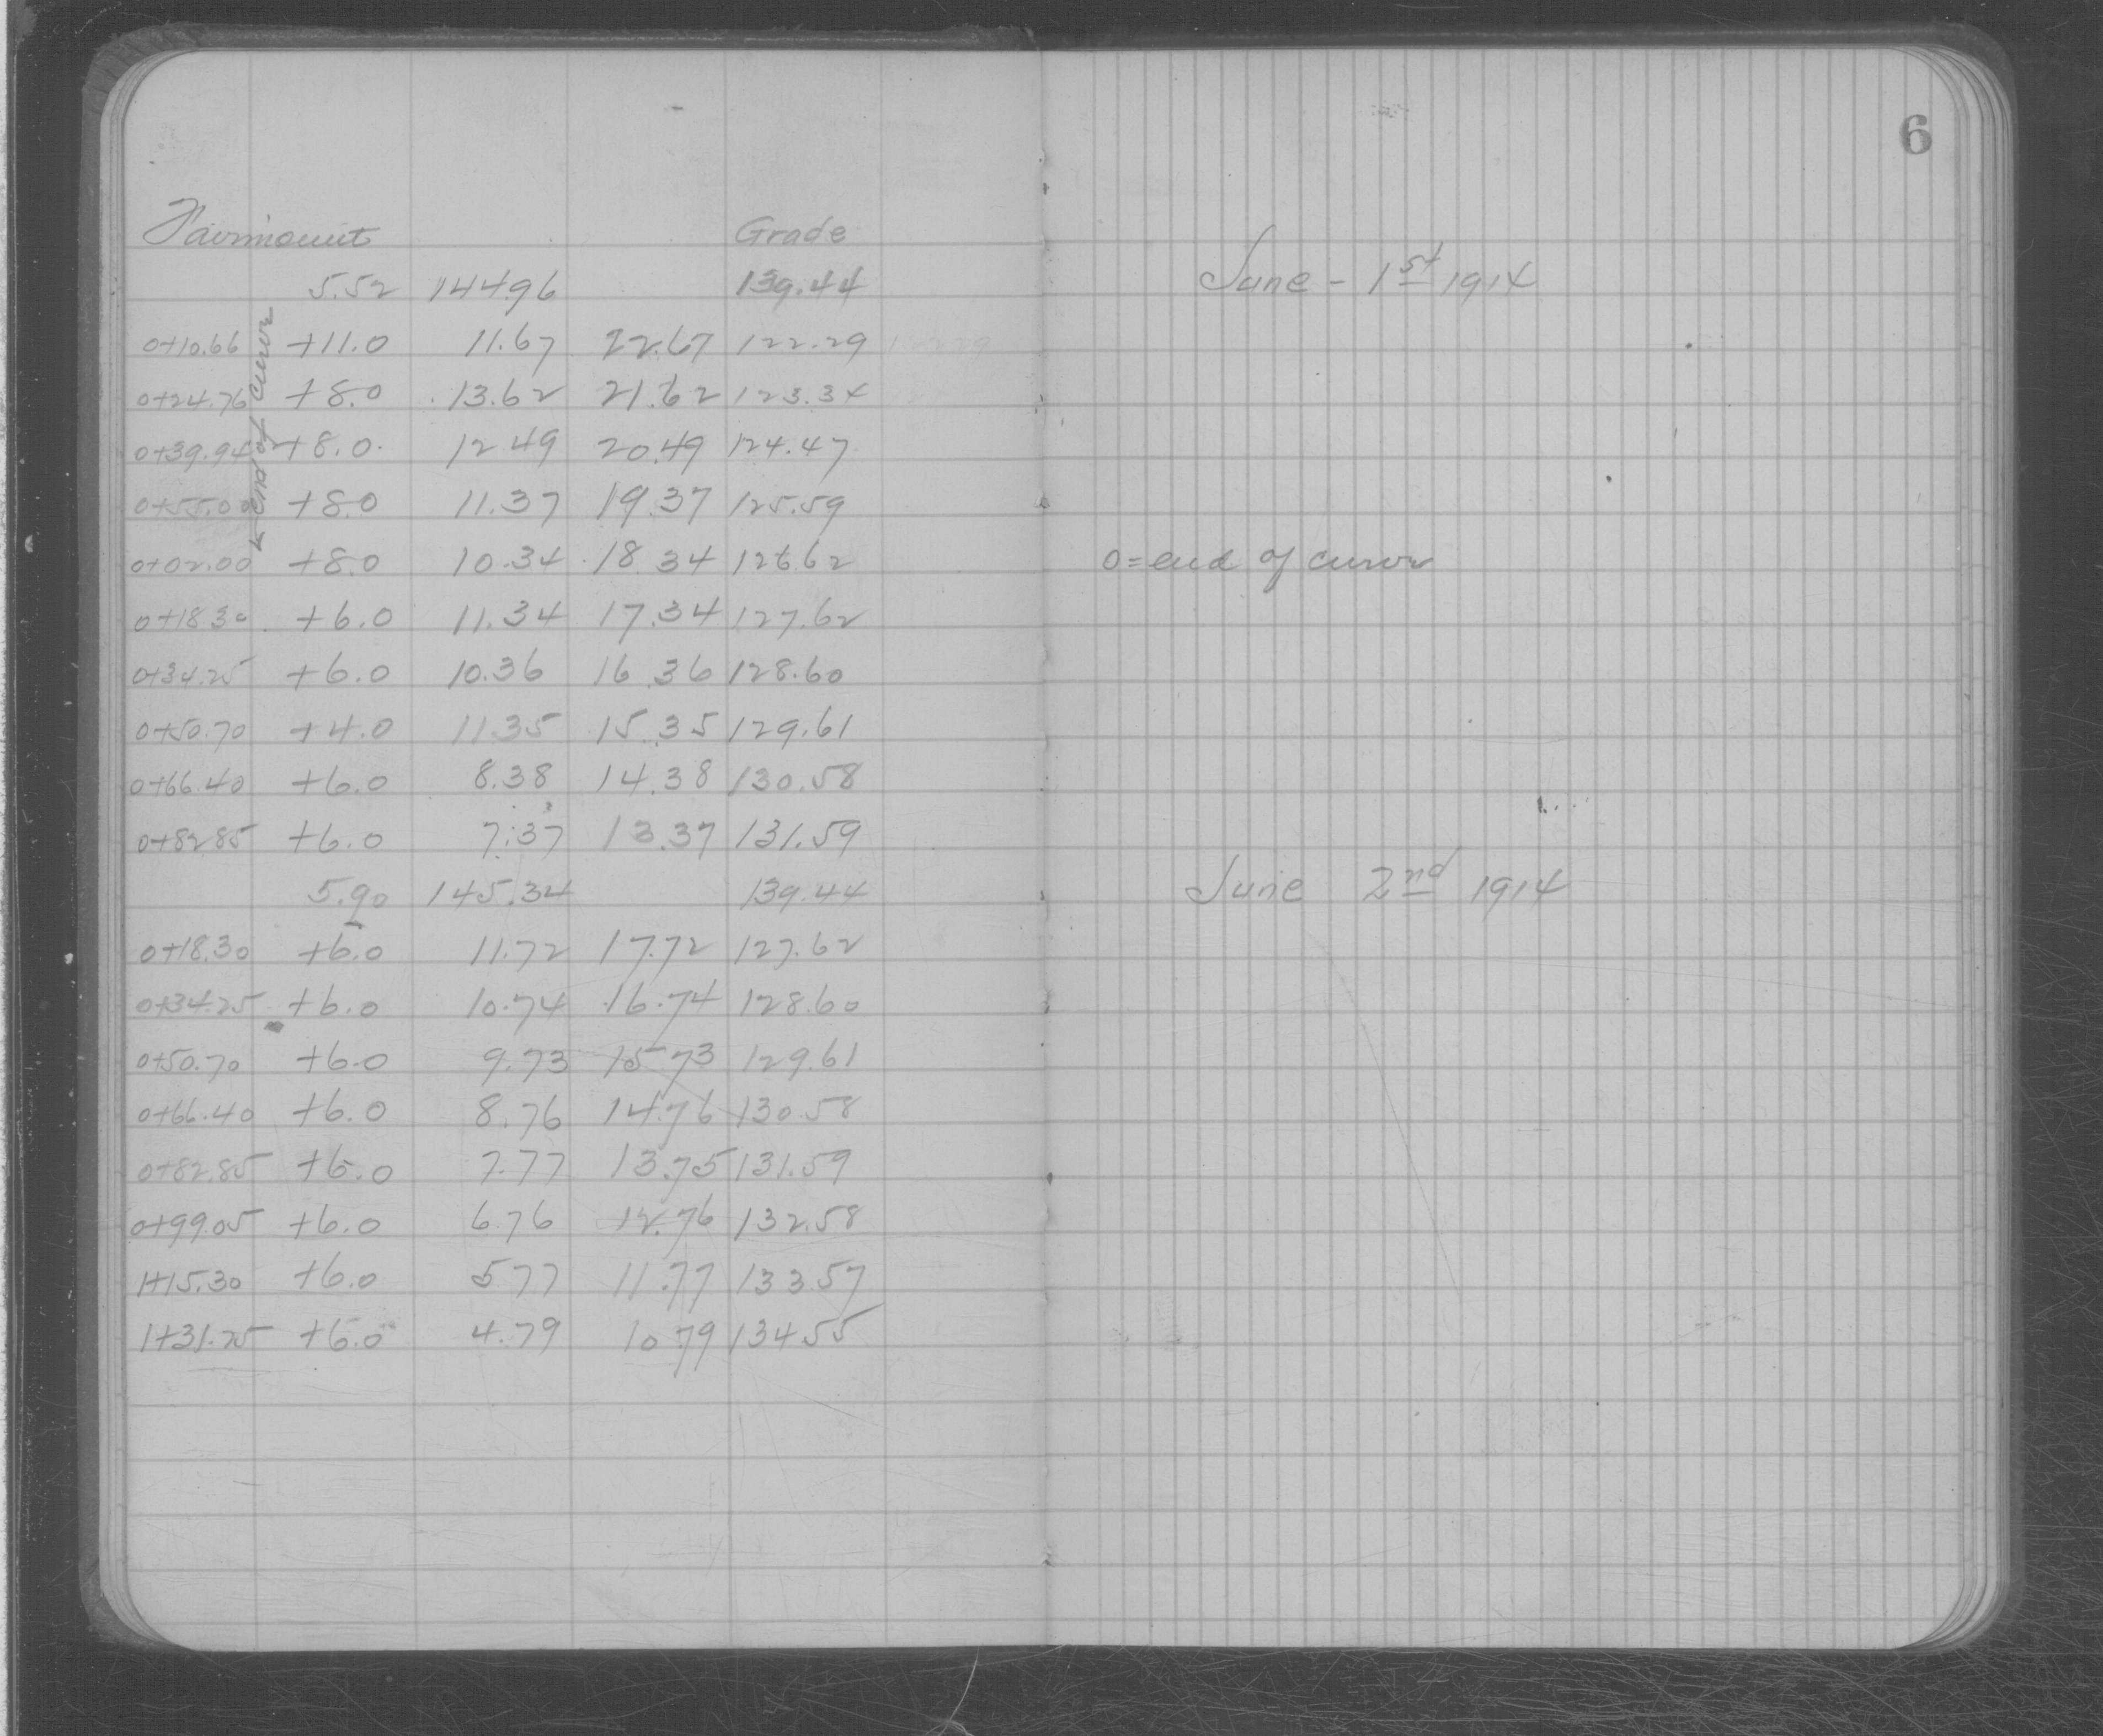 6
Fairmount Grade
5.52 144.96 139.44
0+10.66 +11.0 11.67 22.67 122.29
0+24.76 +8.0 13.62 21.62 123.34
0+39.94 +8.0 12.49 20.49 124.47
0+55.00 +8.0 11.37 19.37 125.59
0+02.00 +8.0 10.34 18.34 126.62
0+18.30 +6.0 11.34 17.34 127.62
0+34.25 +6.0 10.36 16.36 128.60
0+50.70 +4.0 11.35 15.35 129.61
0+66.40 +6.0 8.38 14.38 130.58
0+82.85 +6.0 7.37 13.37 131.59
5.90 145.34 139.44
0+18.30 +6.0 11.72 17.72 127.62
0+34.25 +6.0 10.74 16.74 128.60
0+50.70 +6.0 9.73 15.73 129.61
0+66.40 +6.0 8.76 14.76 130.58
0+82.85 +6.0 7.77 13.75 131.59
0+99.05 +6.0 6.76 12.76 132.58
1+15.30 +6.0 5.77 11.77 133.57
1+31.25 +6.0 4.79 10.79 134.55
end of curve
June - 1st 1914
0=end of curve
June 2nd 1914